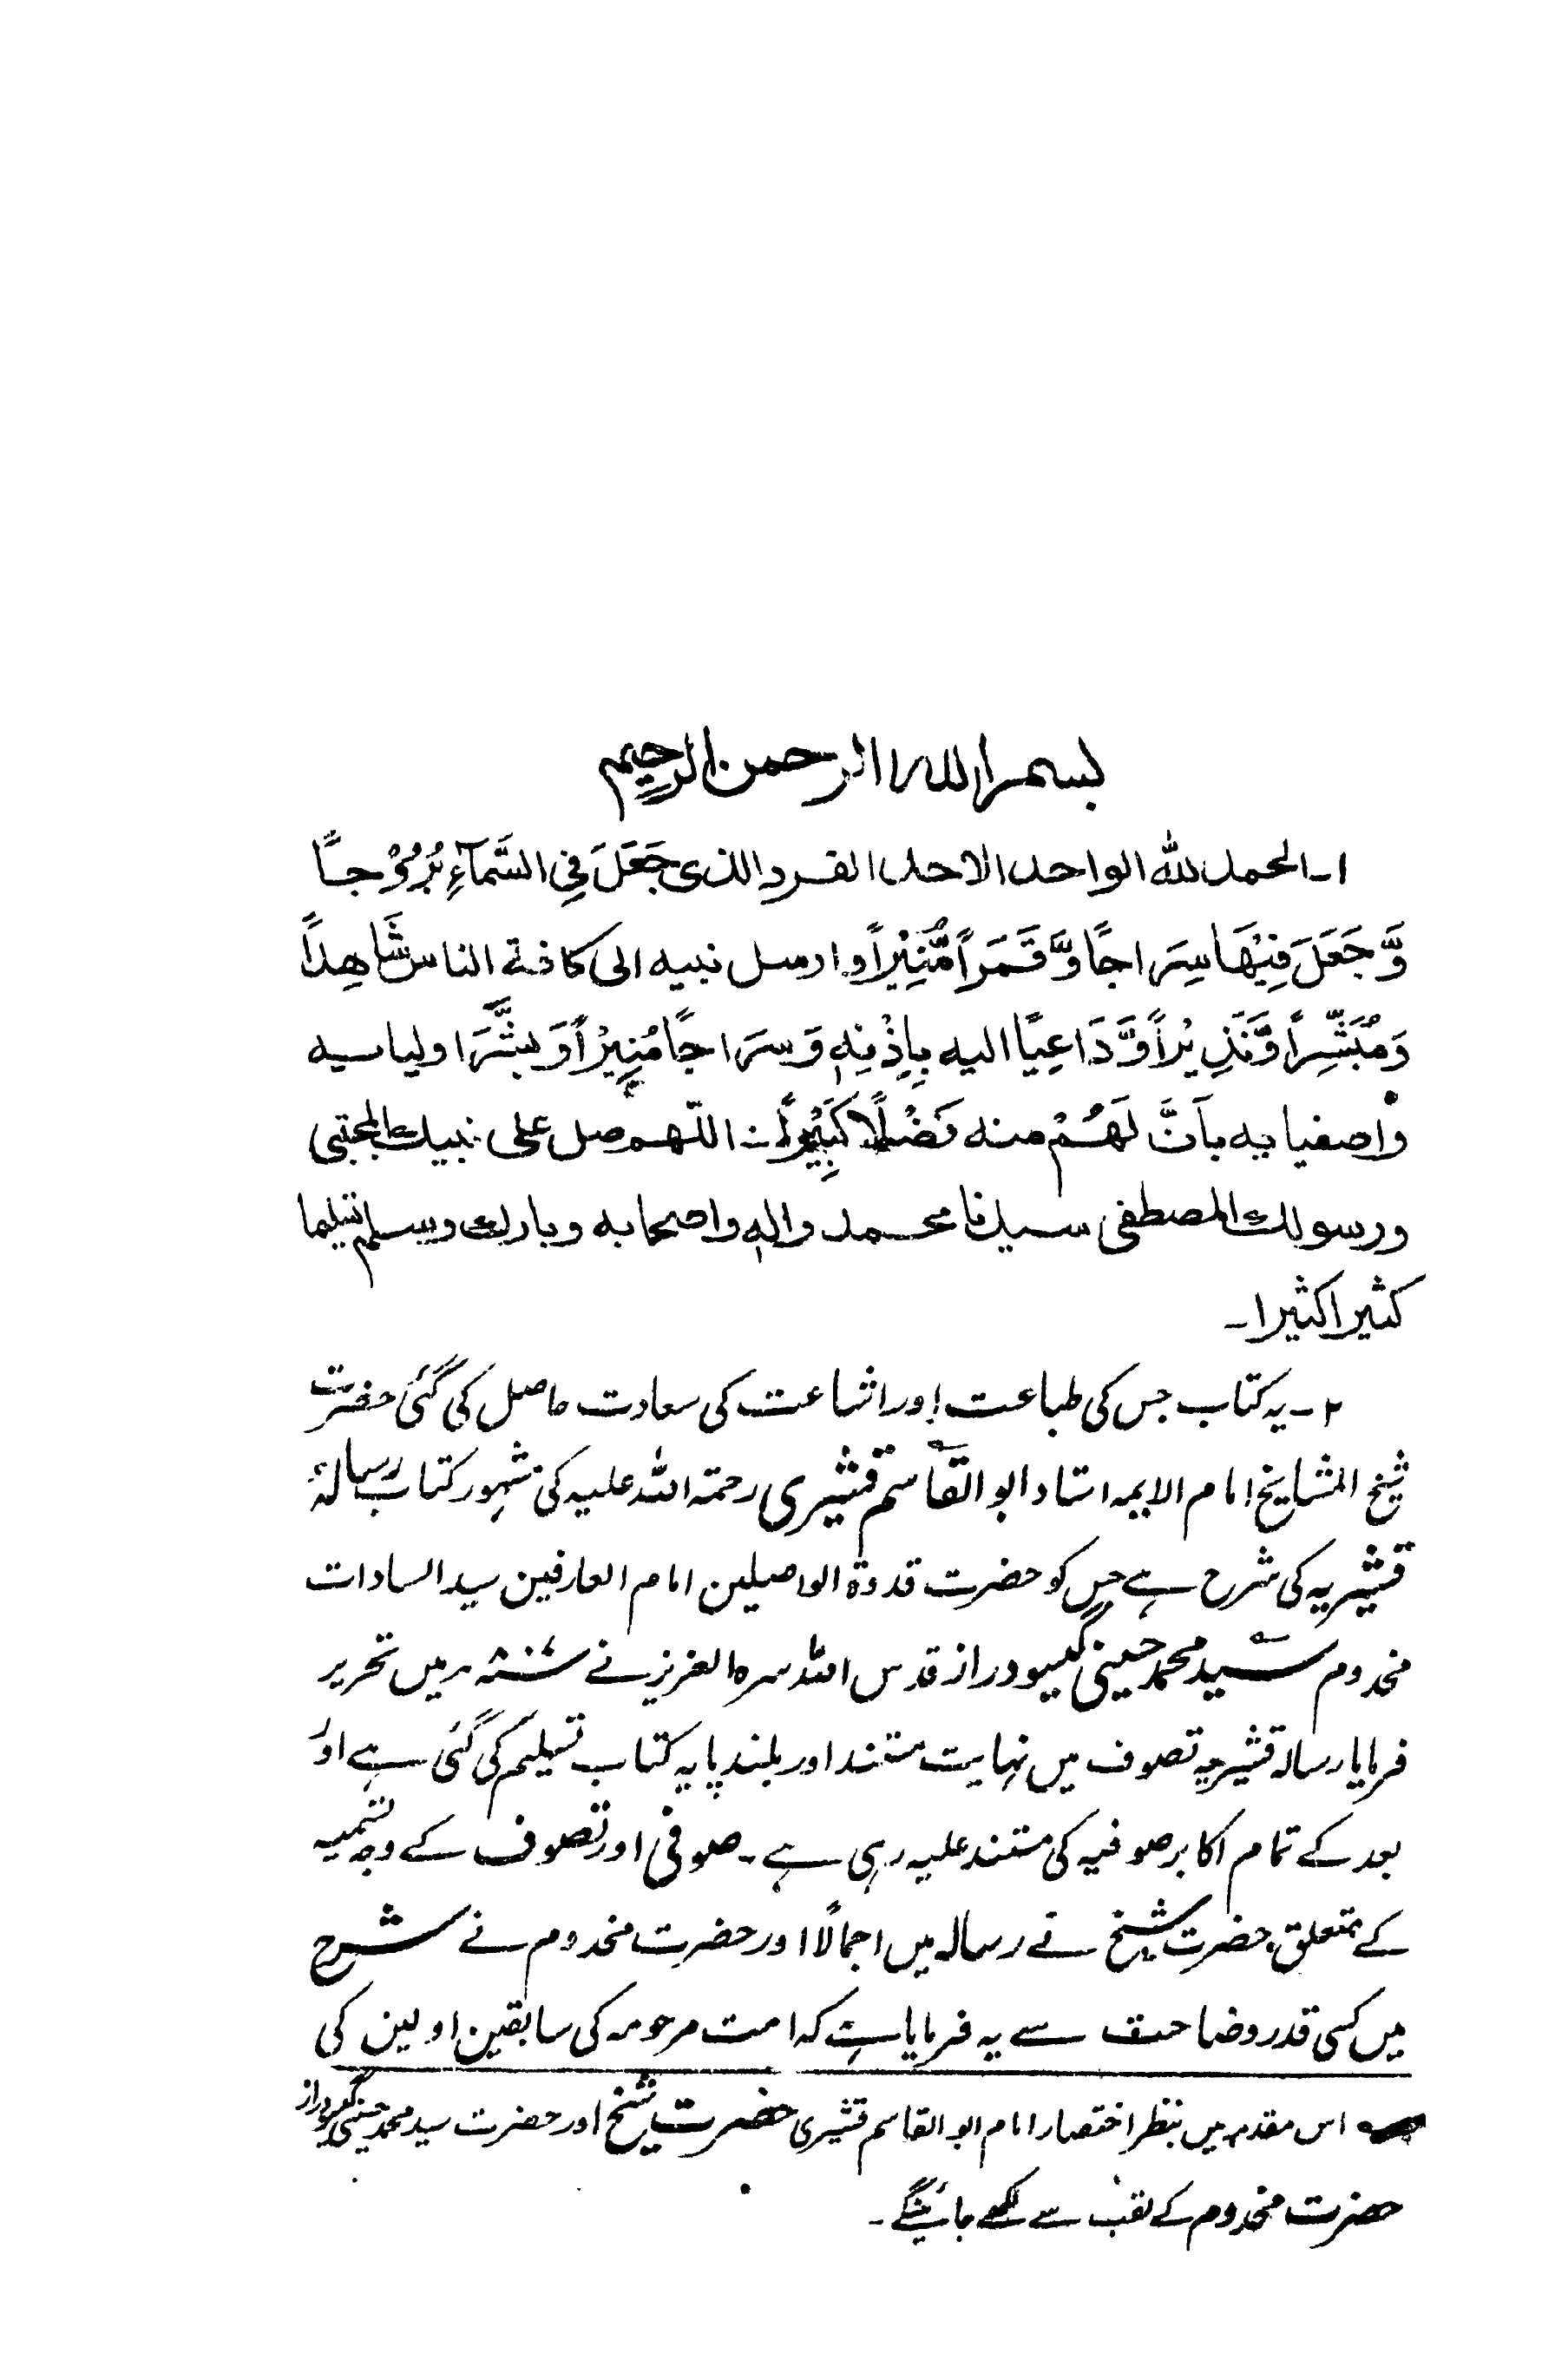 بسم الله الرحمن الرحيم
۱۔ الحمد لله الواحد الاحد الفرد الذی جَعَلَ فِی السَّمَآءِ بُرُوْجًا
وَّجَعَلَ فِیْهَا سِرَاجًا وَّقَمَراً مُّنِیْراً و ارسل نبیه الی کافة الناس شَاهِداً
وَمُبَشِّراً وَّنَذِیْراً وَّدَاعِیًا الیه بِاِذْنِهٖ وَسِرَاجًا مُنِیْراً وَبَشَّرَ اولیاسیه
واصفیاییه بِاَنَّ لَهُمْ منه فَضْلًا کَبِیْراً۔ اللّٰهم صل علی نبیك المجتبی
ورسولك المصطفی سیدنا محمد واٰلهٖ واصحابه وبارك وسلم تسلیما
کثیرا کثیرا۔
۲۔ یہ کتاب جس کی طباعت اور اشاعت کی سعادت حاصل کی گئی حضرت
شیخ المشایخ امام الایمہ استاد ابو القاسم قشیری رحمتہ اللہ علیہ کی مشہور کتاب رسالۂ
قشیریہ کی شرح ہے جس کو حضرت قدوۃ الواصلین امام العارفین سید السادات
مخدوم سید محمد حسینی گیسو دراز قدس اللہ سرہ العزیز نے میں تحریر
فرمایا رسالہ قشیریہ تصوف میں نہایت مستند اور بلند پایہ کتاب تسلیم کی گئی ہے اور
بعد کے تمام اکابر صوفیہ کی مستند علیہ رہی ہے۔ صوفی اور تصوف کے وجہ تسمیہ
کے متعلق حضرت شیخ نے رسالہ میں اجمالًا اور حضرت مخدوم نے شرح
میں کسی قدر وضاحت سے یہ فرمایا ہے کہ امت مرحومہ کی سابقین اولین کی
اس مقدمہ میں بنظر اختصار امام ابو القاسم قشیری حضرت شیخ اور حضرت سید محمد حسینی گیسو دراز
حضرت مخدوم کے لقب سے لکھے جائینگے۔